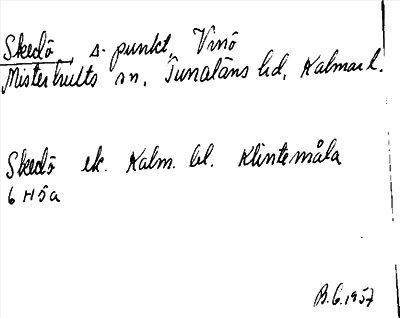 Skedö, s. punkt, Vinö
Misterhults sn, Tunaläns hd, Kalmar l.
Skedö ek. Kalm. bl. Klintemåla
6 H 5a
B.G. 1957